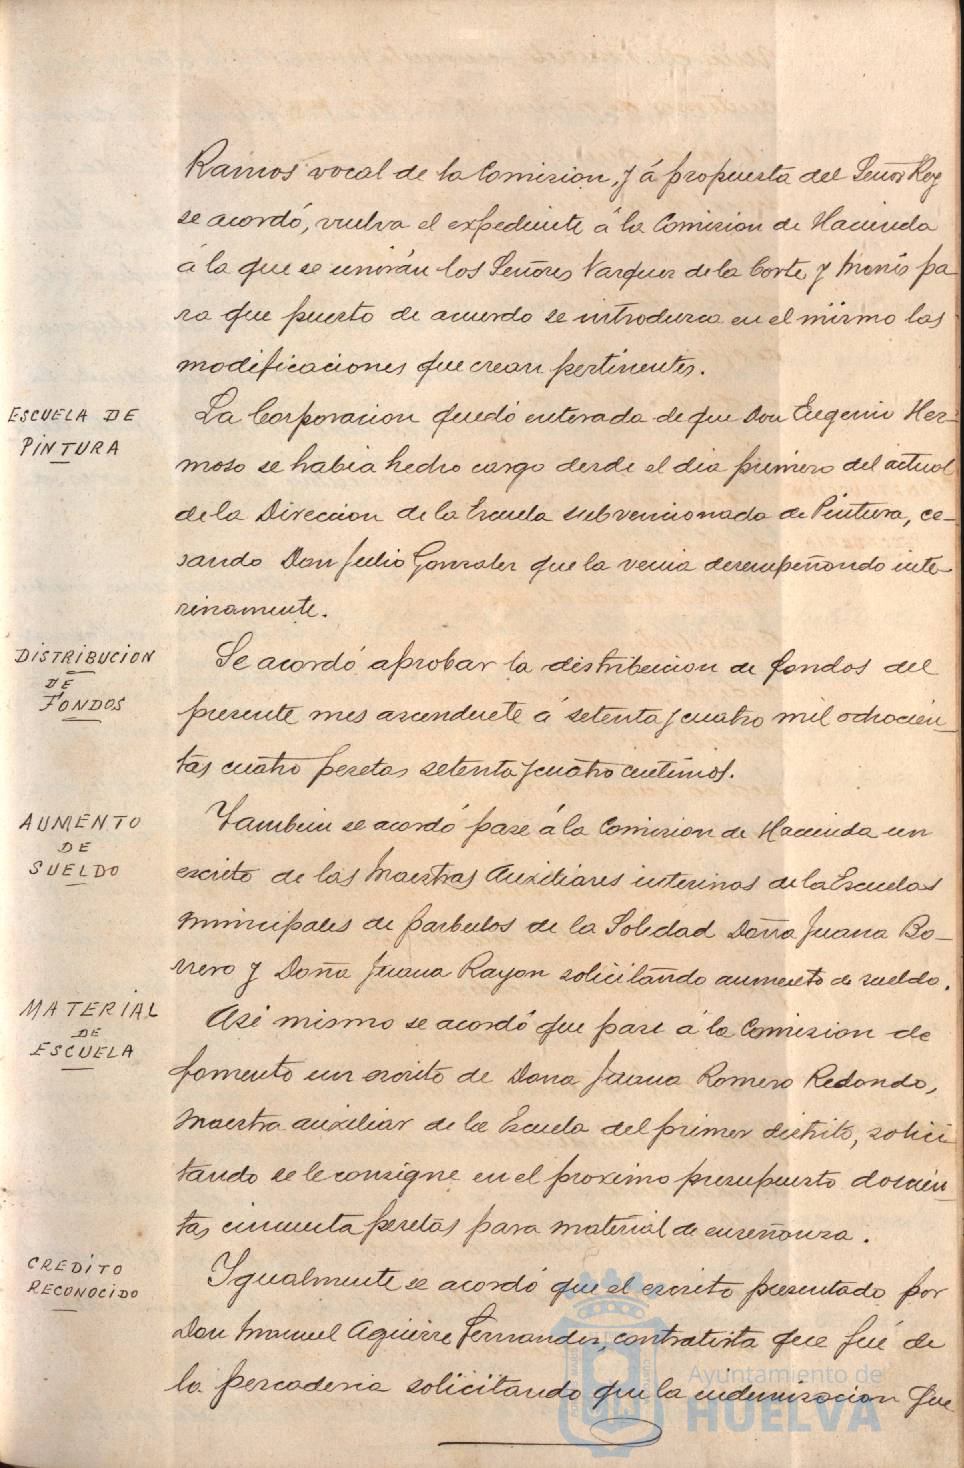 Ramos vocal de la Comision, y á propuesta del Señor Rey
se acordó, vuelva el expediente á la Comision de Hacienda
á la que se unirán los Señores Vazquez de la Corte y Monís pa-
ra que puesto de acuerdo se introduzca en el mismo las
modificaciones que crean pertinentes.
ESCUELA DE
PINTURA
La Corporacion quedó enterada de que Don Eugenio Her-
moso se habia hecho cargo desde el dia primero del actual
de la Direccion de la Escuela subvencionada de Pintura, ce-
sando Don Julio Gonzalez que la venia desempeñando inte-
rinamente.
DISTRIBUCION
DE
FONDOS
Se acordó aprobar la distribucion de fondos del
presente mes ascendente á setenta y cuatro mil ochocien-
tas cuatro pesetas setenta y cuatro centimos.
AUMENTO
DE
SUELDO
Tambien se acordó pase á la Comision de Hacienda un
escrito de las Maestras Auxiliares interinas de la Escuelas
Municipales de parbulos de la Soledad Doña Juana Bo-
rrero y Doña Juana Rayon solicitando aumento de sueldo.
MATERIAL
DE
ESCUELA
Asi mismo se acordó que pase á la Comision de
fomento un escrito de Dona Juana Romero Redondo,
Maestra auxiliar de la Escuela del primer distrito, solici-
tando se le consigne en el proximo presupuesto doscien-
tas cincuenta pesetas para material de enseñanza.
CREDITO
RECONOCIDO
Ygualmente se acordó que el escrito presentado por
Don Manuel Aguirre Fernandez, contratista que fué de
la pescaderia solicitando que la indemnizacion que
Ayuntamiento de
HUELVA